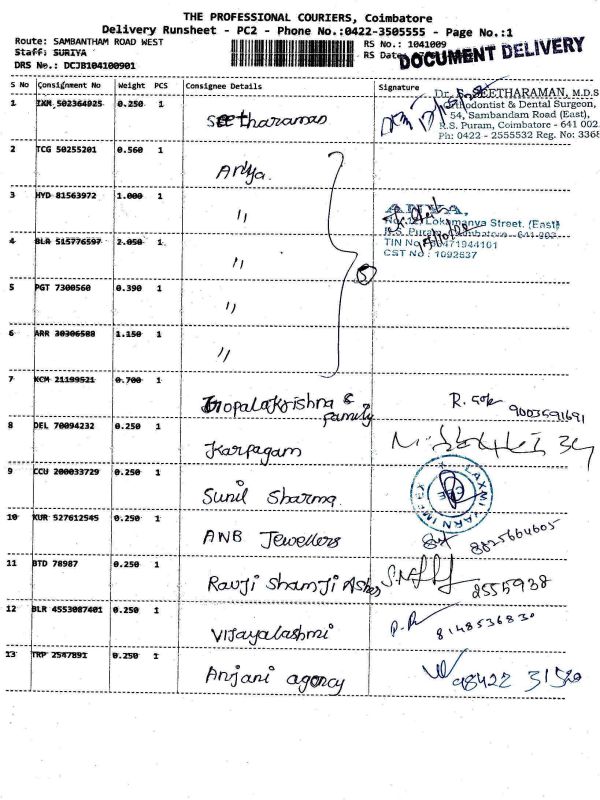 THE PROFESSIONAL COURIERS, Coimbatore
Delivery Runsheet - PC2 - Phone No.:0422-3505555 - Page No.:1
Route: SAMBANTHAM ROAD WEST
Staff: SURIYA
DRS No.: DCJB104100901
RS No.: 1041009
RS Date
DOCUMENT DELIVERY
S No Consignment No Weight PCS Consignee Details Signature
Dr. SEETHARAMAN, M.D.S
Orthodontist & Dental Surgeon,
54, Sambandam Road (East),
R.S. Puram, Coimbatore - 641 002
Ph: 0422 - 2555532 Reg. No: 3368
1 IXM 502364925 0.250 1 Seetharaman
2 TCG 50255201 0.560 1 Anya.
3 HYD 81563972 1.000 1 "
Lokamanya Street, (East)
R.S. Puram, Coimbatore
TIN No 471944101
CST No : 1092637
4 BLR 515776597 2.050 1 "
5
5 PGT 7300560 0.390 1 "
6 ARR 30306508 1.150 1 "
7 KCM 21199521 0.700 1 Gopalakrishna & family R. Gok 9003591691
8 DEL 70094232 0.250 1 Karpagam
9 CCU 200033729 0.250 1 Sunil Sharma.
LAXMI YARN IMPEX
CBE
10 KUR 527612545 0.250 1 ANB Jewellers 8825664605
11 BTD 78987 0.250 1 Ravji Shamji Asher 2555938
12 BLR 4553087401 0.250 1 Vijayalashmi 8148536830
13 TRP 2547891 0.250 1 Anjani agency 98422 31520